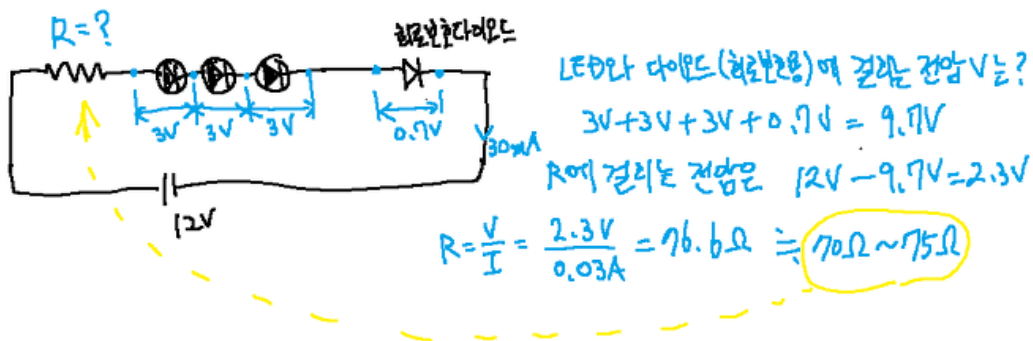 R=?
회로보호다이오드
3V 3V 3V
0.7V
30mA
12V
LED와 다이오드(회로보호용)에 걸리는 전압 V는?
3V+3V+3V+0.7V = 9.7V
R에 걸리는 전압은 12V-9.7V=2.3V
R=V/I = 2.3V/0.03A = 76.6Ω ≒ 70Ω~75Ω